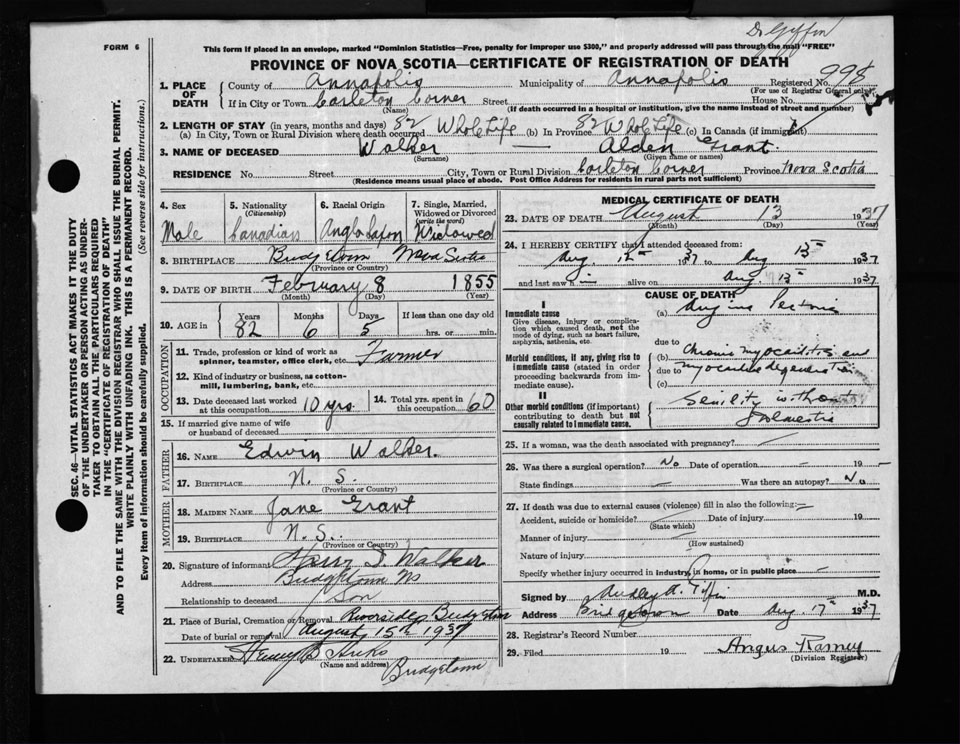 Dr Giffin
FORM 6
This form if placed in an envelope, marked "Dominion Statistics—Free, penalty for improper use $300," and properly addressed will pass through the mail "FREE"
PROVINCE OF NOVA SCOTIA—CERTIFICATE OF REGISTRATION OF DEATH
1. PLACE OF DEATH
County of Annapolis Municipality of Annapolis Registered No. 998
(For use of Registrar General only)
If in City or Town Carleton Corner Street House No.
(Name) (If death occurred in a hospital or institution, give the name instead of street and number)
2. LENGTH OF STAY (in years, months and days)
(a) In City, Town or Rural Division where death occurred 82 Whole Life (b) In Province 82 Whole Life (c) In Canada (if immigrant)
3. NAME OF DECEASED Walker — Alden Grant.
(Surname) (Given name or names)
RESIDENCE No. Street City, Town or Rural Division Carleton Corner Province Nova Scotia
(Residence means usual place of abode. Post Office Address for residents in rural parts not sufficient)
4. Sex 5. Nationality (Citizenship) 6. Racial Origin 7. Single, Married, Widowed or Divorced (write the word)
Male Canadian Anglo Saxon Widowed
8. BIRTHPLACE Bridgetown Nova Scotia
(Province or Country)
9. DATE OF BIRTH February 8 1855
(Month) (Day) (Year)
10. AGE in Years Months Days If less than one day old
82 6 5 hrs. or min.
OCCUPATION
11. Trade, profession or kind of work as spinner, teamster, office clerk, etc. Farmer
12. Kind of industry or business, as cotton-mill, lumbering, bank, etc.
13. Date deceased last worked at this occupation 10 yrs. 14. Total yrs. spent in this occupation 60
15. If married give name of wife or husband of deceased
FATHER
16. NAME Edwin Walker.
17. BIRTHPLACE N. S.
(Province or Country)
MOTHER
18. MAIDEN NAME Jane Grant
19. BIRTHPLACE N. S.
(Province or Country)
20. Signature of informant Harry Walker
Address Bridgetown NS
Relationship to deceased Son
21. Place of Burial, Cremation or Removal Riverside, Bridgetown
Date of burial or removal August 15th 1937
22. UNDERTAKER Henry B Hicks
(Name and address) Bridgetown
MEDICAL CERTIFICATE OF DEATH
23. DATE OF DEATH August 13 1937
(Month) (Day) (Year)
24. I HEREBY CERTIFY that I attended deceased from:
Aug. 12th 1937 to Aug 13th 1937
and last saw him alive on Aug. 13th 1937
CAUSE OF DEATH
I
Immediate cause
Give disease, injury or complication which caused death, not the mode of dying, such as heart failure, asphyxia, asthenia, etc.
(a) Angina Pectoris
due to
Morbid conditions, if any, giving rise to immediate cause (stated in order proceeding backwards from immediate cause).
(b) Chronic myocarditis and
due to myocardial degeneration
(c)
II
Other morbid conditions (if important) contributing to death but not causally related to immediate cause.
Senility with
25. If a woman, was the death associated with pregnancy?
26. Was there a surgical operation? No Date of operation – 19 –
State findings – Was there an autopsy? No
27. If death was due to external causes (violence) fill in also the following:
Accident, suicide or homicide? Date of injury 19
(State which)
Manner of injury
(How sustained)
Nature of injury
Specify whether injury occurred in industry, in home, or in public place
Signed by Audley A. Giffin M.D.
Address Bridgetown Date Aug. 17th 1937
28. Registrar's Record Number
29. Filed 19 Angus Ramey
(Division Registrar)
SEC. 46—VITAL STATISTICS ACT MAKES IT THE DUTY
OF THE UNDERTAKER OR PERSON ACTING AS UNDER-
TAKER TO OBTAIN ALL THE PARTICULARS REQUIRED
IN THE "CERTIFICATE OF REGISTRATION OF DEATH"
AND TO FILE THE SAME WITH THE DIVISION REGISTRAR WHO SHALL ISSUE THE BURIAL PERMIT.
WRITE PLAINLY WITH UNFADING INK. THIS IS A PERMANENT RECORD.
Every item of information should be carefully supplied. (See reverse side for instructions.)